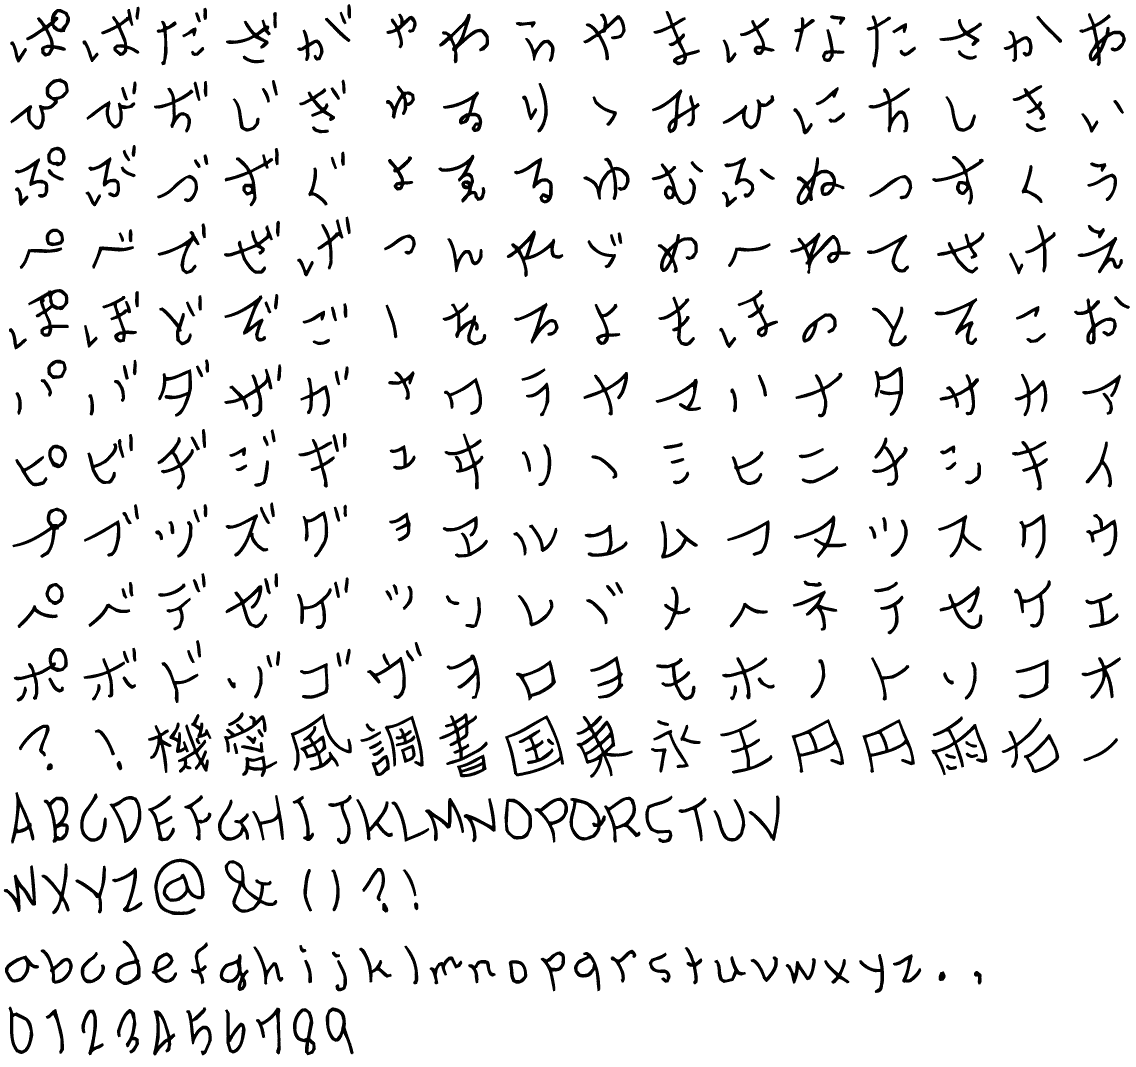 ぱ ば だ ざ が ゃ わ ら や ま は な た さ か あ
ぴ び ぢ じ ぎ ゅ ゐ り ゝ み ひ に ち し き い
ぷ ぶ づ ず ぐ ょ ゑ る ゆ む ふ ぬ つ す く う
ぺ べ で ぜ げ っ ん れ ゞ め へ ね て せ け え
ぽ ぼ ど ぞ ご ー を ろ よ も ほ の と そ こ お
パ バ ダ ザ ガ ャ ワ ラ ヤ マ ハ ナ タ サ カ ア
ピ ビ ヂ ジ ギ ュ ヰ リ ヽ ミ ヒ ニ チ シ キ イ
プ ブ ヅ ズ グ ョ ヱ ル ユ ム フ ヌ ツ ス ク ウ
ペ ベ デ ゼ ゲ ッ ン レ ヾ メ ヘ ネ テ セ ケ エ
ポ ボ ド ゾ ゴ ヴ ヲ ロ ヨ モ ホ ノ ト ソ コ オ
? ! 機 愛 風 調 書 国 東 永 王 円 円 雨 右 一
ABCDEFGHIJKLMNOPQRSTUV
WXYZ@&()?!
abcdefghijklmnopqrstuvwxyz.,
0123456789